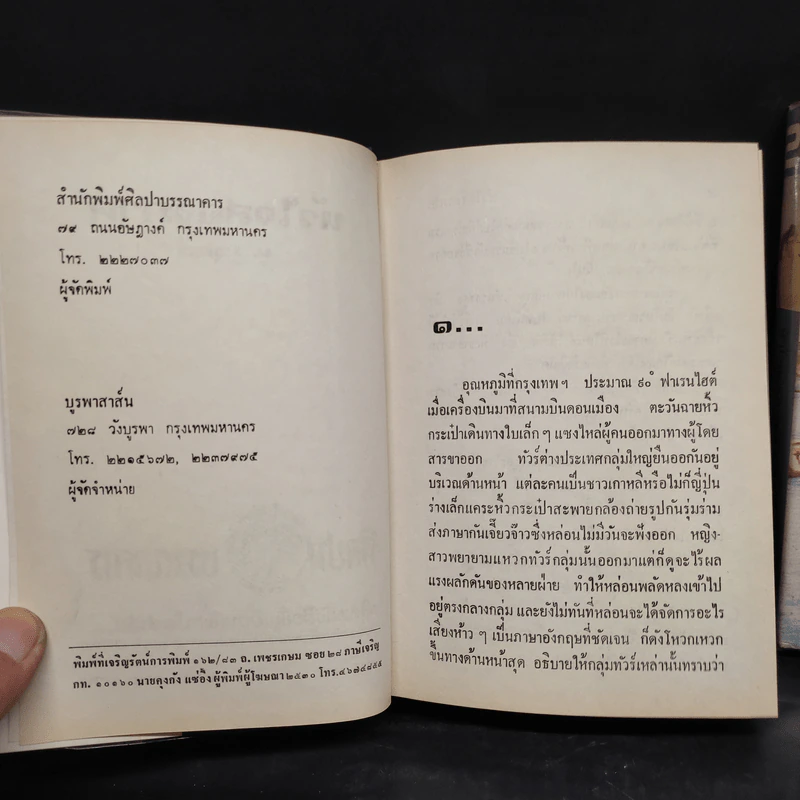 สำนักพิมพ์ศิลปาบรรณาคาร
๗๙ ถนนอัษฎางค์ กรุงเทพมหานคร
โทร. ๒๒๒๗๐๓๗
ผู้จัดพิมพ์
บูรพาสาส์น
๗๒๘ วังบูรพา กรุงเทพมหานคร
โทร. ๒๒๑๕๖๗๒, ๒๒๓๗๙๗๕
ผู้จัดจำหน่าย
พิมพ์ที่เจริญรัตน์การพิมพ์ ๑๖๒/๘๓ ถ. เพชรเกษม ซอย ๒๘ ภาษีเจริญ
กท. ๑๐๑๖๐ นายคุงกัง แซ่อึง ผู้พิมพ์ผู้โฆษณา ๒๕๓๐ โทร.๔๖๗๔๘๕๕
๑...
อุณหภูมิที่กรุงเทพ ฯ ประมาณ ๙๐° ฟาเรนไฮต์
เมื่อเครื่องบินมาที่สนามบินดอนเมือง ตะวันฉายหิ้ว
กระเป๋าเดินทางใบเล็ก ๆ แซงไหล่ผู้คนออกมาทางผู้โดย
สารขาออก ทัวร์ต่างประเทศกลุ่มใหญ่ยืนออกันอยู่
บริเวณด้านหน้า แต่ละคนเป็นชาวเกาหลีหรือไม่ก็ญี่ปุ่น
ร่างเล็กแคระหิ้วกระเป๋าสะพายกล้องถ่ายรูปกันรุ่มร่าม
ส่งภาษากันเจี๊ยวจ๊าวซึ่งหล่อนไม่มีวันจะฟังออก หญิง-
สาวพยายามแหวกทัวร์กลุ่มนั้นออกมาแต่ก็ดูจะไร้ผล
แรงผลักดันของหลายฝ่าย ทำให้หล่อนพลัดหลงเข้าไป
อยู่ตรงกลางกลุ่ม และยังไม่ทันที่หล่อนจะได้จัดการอะไร
เสียงห้าว ๆ เป็นภาษาอังกฤษที่ชัดเจน ก็ดังโหวกเหวก
ขึ้นทางด้านหน้าสุด อธิบายให้กลุ่มทัวร์เหล่านั้นทราบว่า